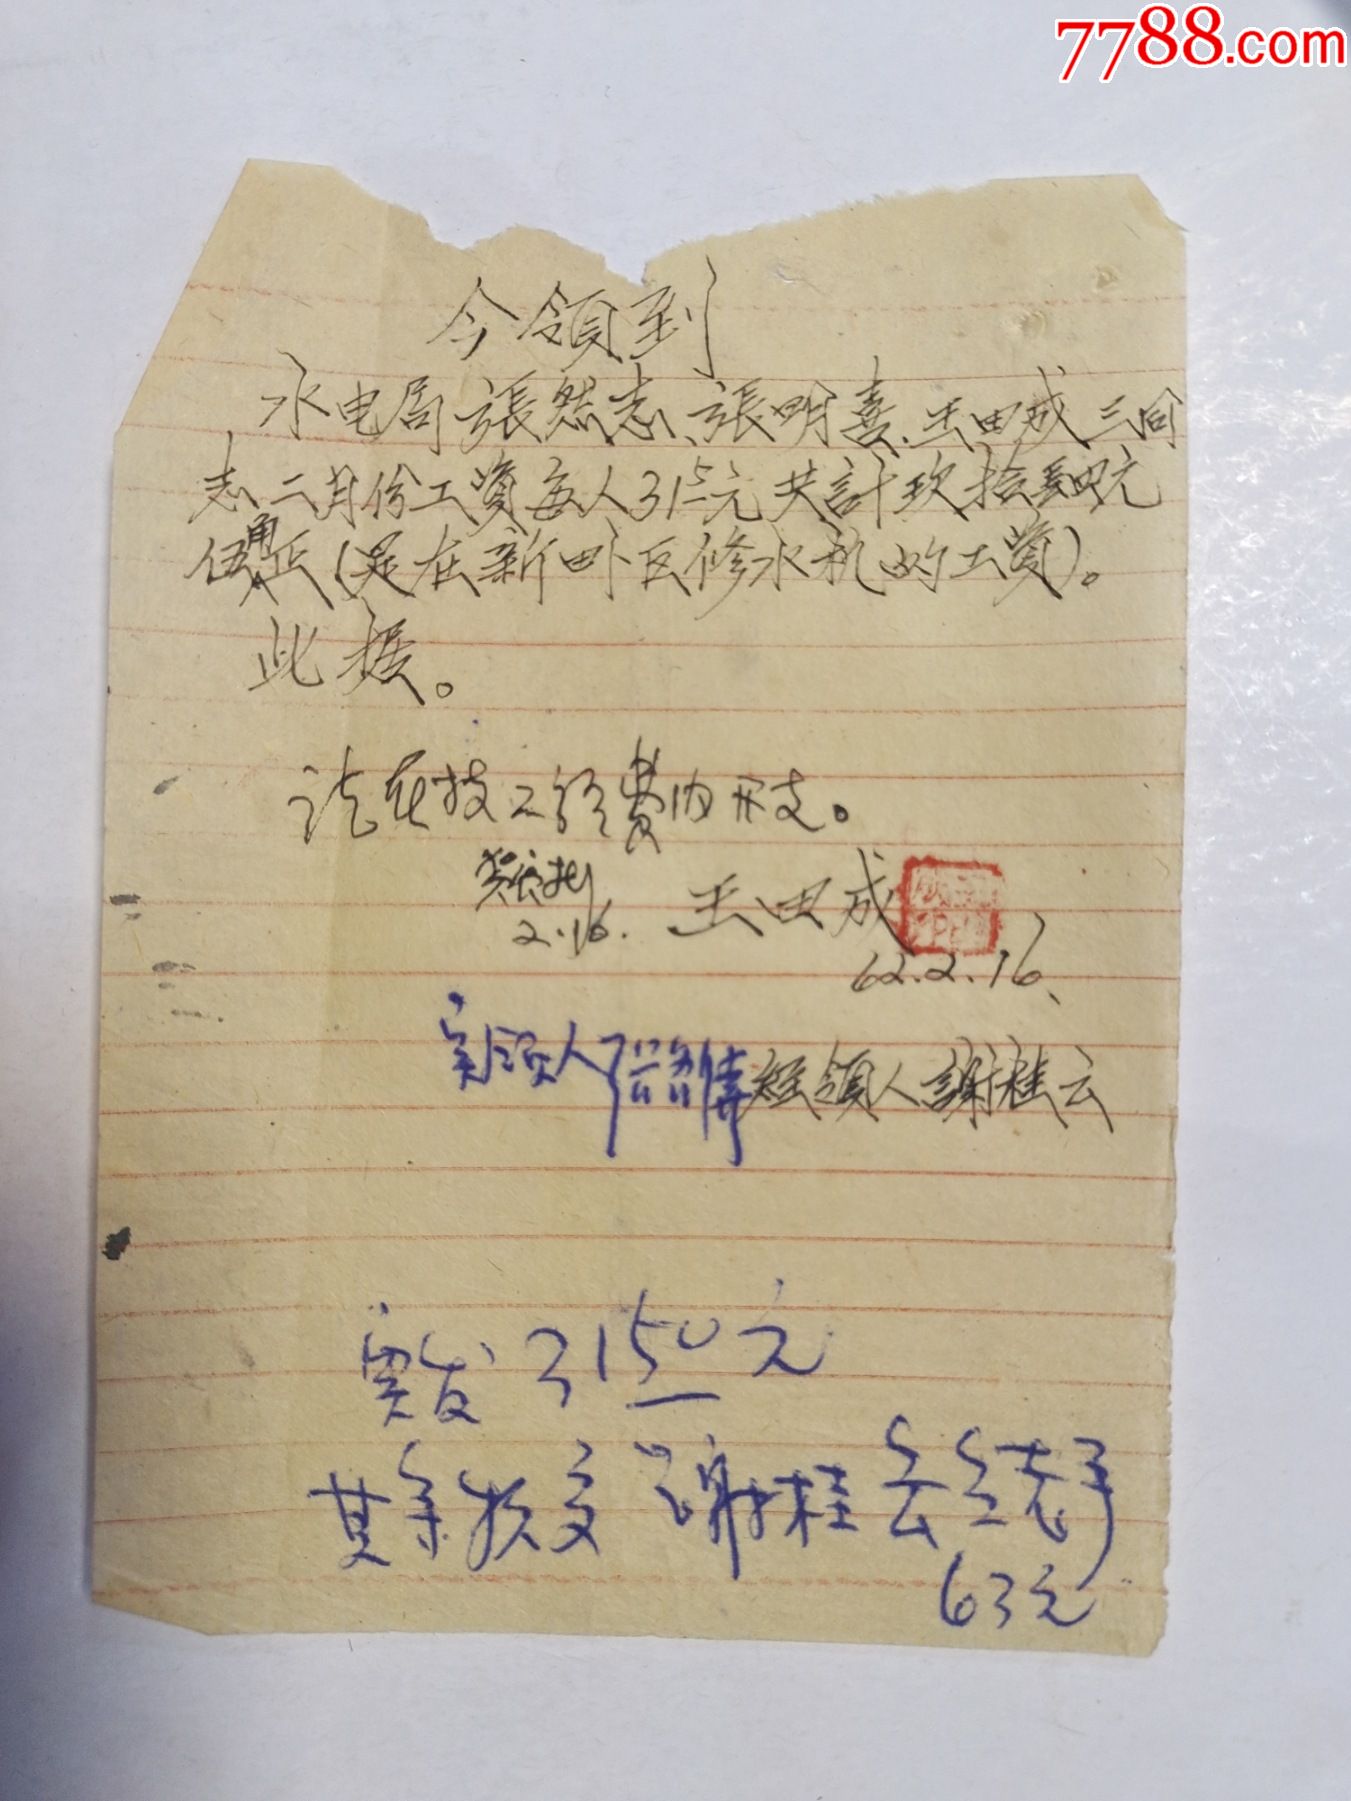 7788.com
今領到
水电局張然志、張明喜、王田成三同
志二月份工資每人315元共計玖拾肆元
伍角正(是在新田区修水机的工資)。
此據。
请在技工经费内开支。
2.16. 王田成
62.2.16、
实领人 经領人謝桂云
实发3150元
其余数交 谢桂云 手
63元